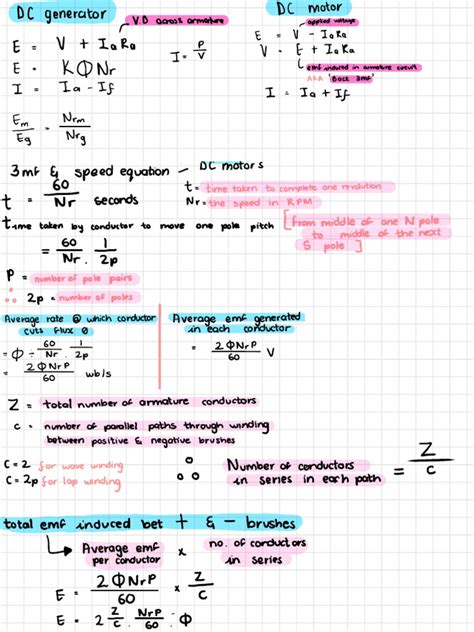 DC generator
V.D across armature
E = V + IaRa
I = P/V
E = KΦNr
I = Ia - If
Em/Eg = Nrm/Nrg
DC motor
applied voltage
E = V - IaRa
V = E + IaRa
emf induced in armature circuit
AKA 'Back 3mf'
I = Ia + If
3mf & speed equation - DC motors
t = 60/Nr seconds
t = time taken to complete one revolution
Nr = the speed in RPM
time taken by conductor to move one pole pitch [from middle of one N pole to middle of the next S pole]
= 60/Nr . 1/2p
P = number of pole pairs
∴ 2p = number of poles
Average rate @ which conductor
cuts flux Φ
= Φ ÷ 60/Nr . 1/2p
= 2ΦNrP/60 wb/s
Average emf generated
in each conductor
= 2ΦNrP/60 V
Z = total number of armature conductors
c = number of parallel paths through winding
between positive & negative brushes
C = 2 for wave winding
C = 2p for lap winding
∴ Number of conductors
in series in each path = Z/c
total emf induced bet + & - brushes
Average emf
per conductor x no. of conductors
in series
E = 2ΦNrP/60 x Z/c
E = 2 Z/c . NrP/60 . Φ